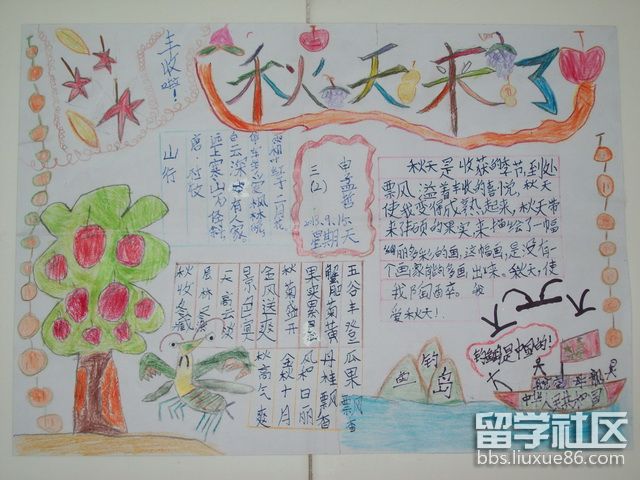 秋天来了
丰收啦！
山行
唐·杜牧
远上寒山
白云深
有人家
停车坐爱枫林晚
霜叶红于二月花
三(2)
2013.9.15
星期天
秋天是收获的季节,到处
飘
着丰收的喜悦,秋天
使
变得成熟起来,秋天带
来
硕的果实,来描绘了一幅
绚丽多彩的画,这幅画,是没有一
个画家能够画出来,秋天使
我陶醉。我
爱秋天！
五谷丰登
瓜果飘香
蟹肥菊黄
丹桂飘香
果实累累
风和日丽
秋菊盛开
金秋十月
金风送爽
秋高气爽
景色宜
天高云淡
层林尽染
秋收冬藏
鱼钓岛
钓鱼岛是中国的!
中华人民共和国
留学社区
bbs.liuxue86.com